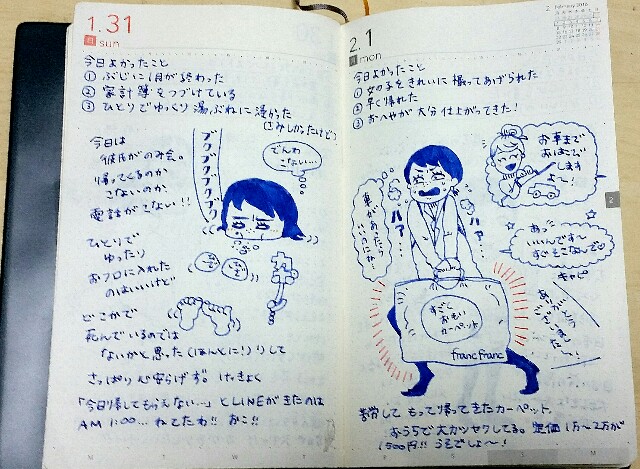 1.31
日 sun
今日よかったこと
① ぶじに1月が終わった
② 家計簿をつづけている
③ ひとりでゆっくり湯ぶねに浸かった
(さみしかったけど)
今日は
彼氏がのみ会。
帰ってくるのか
こないのか
電話がこない!!
ブクブクブクブクブク
でんわ
こない…
ひとりで
ゆったり
おフロに入れた
のはいいけど
どこかで
死んでいるのでは
ないかと思った(ほんとに!)りして
さっぱり心安らげず。けっきょく
「今日帰してもらえない…」とLINEがきたのは
AM 1:00… ねてたわ!! おこ!!
2.1
月 mon
2 February 2016
今日よかったこと
① 女の子をきれいに撮ってあげられた
② 早く帰れた
③ おへやが大分仕上がってきた!
お車まで
おはこび
します
よ〜!
車があったら
いいのにね…
ハァ…
ハァ…
あっ
いいんです〜
すぐそこなんで
キャピ
すごく
おもい
カーペット
francfranc
2
苦労して もって帰ってきたカーペット
おうちで大カツヤクしてる。定価1万〜2万が
1500円!! うそでしょ〜!